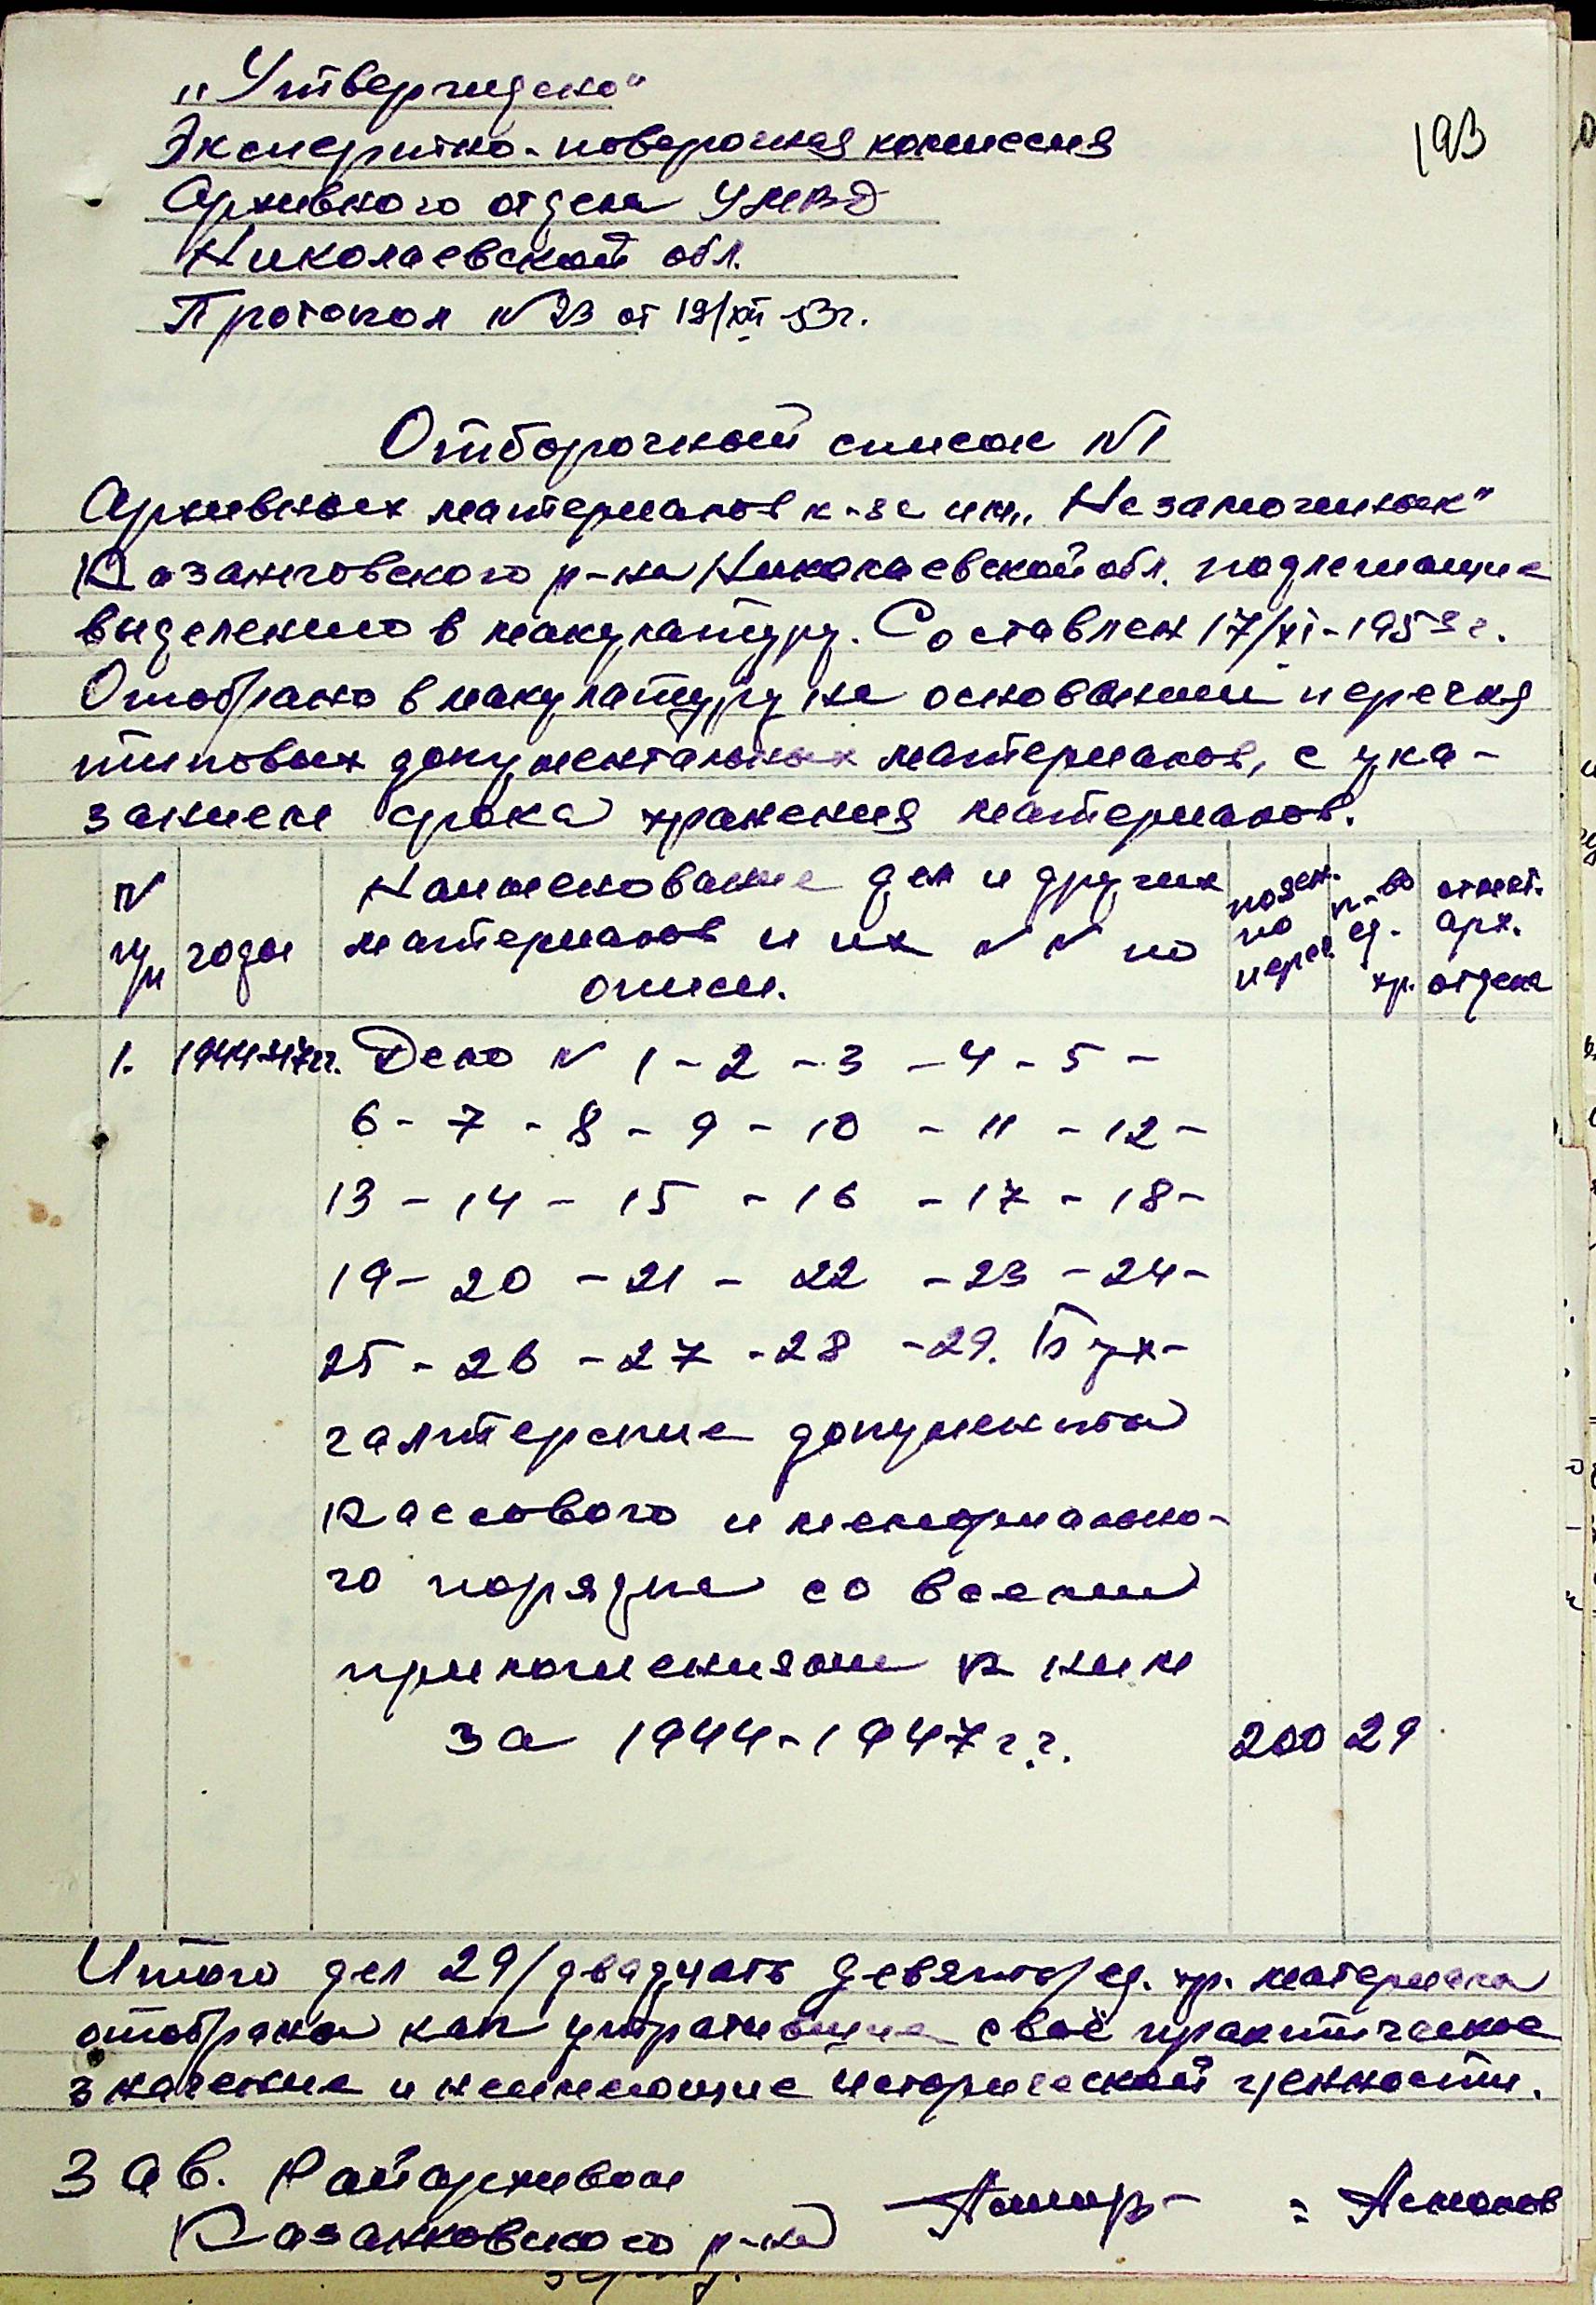 193
„Утверждено"
Экспертно-поверочная комиссия
Архивного отдела УМВД
Николаевской обл.
Протокол №23 от 19/XII 53г.
Отборочный список №1
Архивных материалов к-за им. „Незаможник"
Казанковского р-на Николаевской обл. подлежащие
выделению в макулатуру. Составлен 17/XI-1953г.
Отобрано в макулатуру на основании перечня
типовых документальных материалов, с ука-
занием срока хранения материалов.
№ п/п
годы
Наименование дел и других
материалов и их №№ по
описи.
по перег.
к-во ед. хр.
отмет. арх. отдела
1. 1944-47гг. Дело № 1 - 2 - 3 - 4 - 5 -
6 - 7 - 8 - 9 - 10 - 11 - 12 -
13 - 14 - 15 - 16 - 17 - 18 -
19 - 20 - 21 - 22 - 23 - 24 -
25 - 26 - 27 - 28 - 29. Бух-
галтерские документы
кассового и мемориально-
го порядка со всеми
приложениями к ним
за 1944-1947г.г. 200 29
Итого дел 29/двадцать девять/ед. хр. материала
отобрана как утратившие своё практическое
значение и неимеющие исторической ценности.
Зав. Райархивом
Казанковского р-на